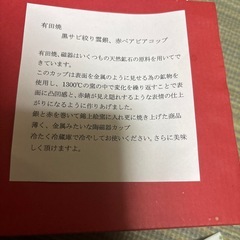 有田焼
黒サビ絞り雲銀、赤ペアビアコップ
有田焼、磁器はいくつもの天然鉱石の原料を用いてで
できています。
このカップは表面を金属のように見せる為の鉱物を
使用し、1300℃の窯の中で変化を繰り返すことで表
面に凸凹感と、赤錆が見え隠れするような表情の仕上
がりになるように作りあげました。
銀と赤を巻いて再上絵窯に入れ更に焼き上げた商品
薄く、金属みたいな陶磁器カップ
冷たく冷蔵庫で冷やしてお使いください。さらに美味
しく頂けますよ。